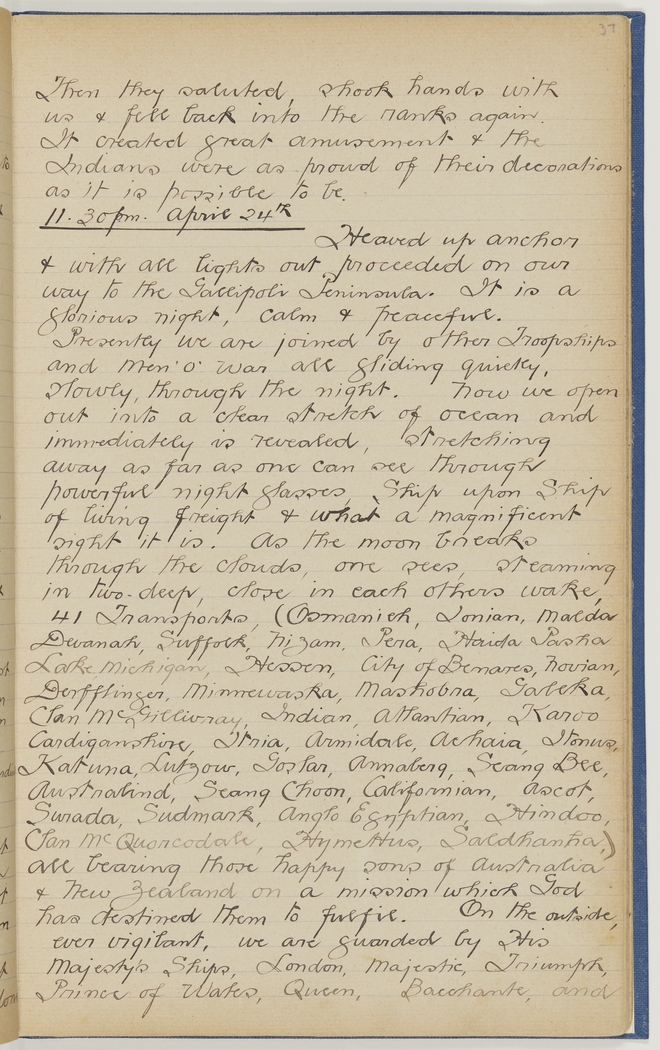 37
Then they saluted, shook hands with
us & fell back into the ranks again.
It created great amusement & the
Indians were as proud of their decorations
as it is possible to be.
11.30pm. April 24th
Heaved up anchor
& with all lights out proceeded on our
way to the Gallipoli Peninsula. It is a
glorious night, calm & peaceful.
Presently we are joined by other Troopships
and men'o'war all gliding quietly,
slowly, through the night. Now we open
out into a clear stretch of ocean and
immediately is revealed, stretching
away as far as one can see through
powerful night glasses, Ship upon Ship
of living freight & what a magnificent
sight it is. As the moon breaks
through the clouds, one sees, steaming
in two-deep, close in each others wake,
41 Transports, (Osmanieh, Ionian, Malda
Devanah, Suffolk, Nizam, Pera, Haida Pasha
Lake Michigan, Hessen, City of Benares, Novian,
Derfflinger, Minnewaska, Mashobra, Galeka,
Clan McGillivray, Indian, Atlantian, Karoo
Cardiganshire, Itria, Armidale, Achaia, Itonus,
Katuna, Lutzow, Goslar, Annaberg, Seang Bee,
Australind, Seang Choon, Californian, Ascot,
Surada, Sudmark, Anglo Egyptian, Hindoo,
Clan McQuorcodale, Hymettus, Saldhanha,)
all bearing those happy sons of Australia
& New Zealand on a mission which God
has destined them to fulfil. On the outside,
ever vigilant, we are guarded by His
Majesty's Ships, London, Majestic, Triumph,
Prince of Wales, Queen, Bacchante, and